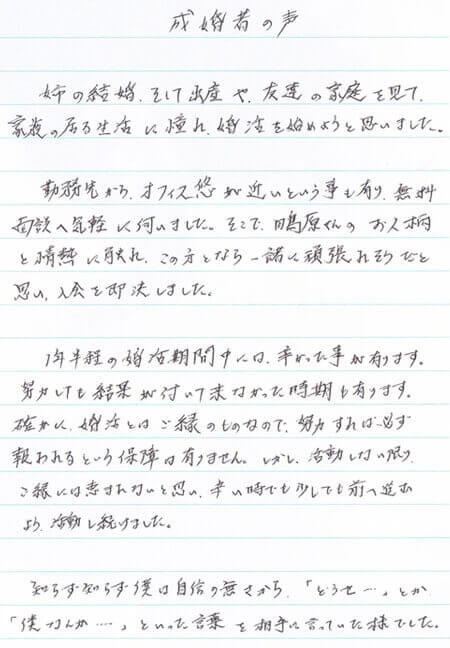 成婚者の声
姉の結婚、そして出産や、友達の家庭を見て、
家族の居る生活に憧れ、婚活を始めようと思いました。
勤務先から、オフィス悠が近いという事も有り、無料
面談へ気軽に伺いました。そこで、鳴原くんのお人柄
と情熱に触れ、この方となら一緒に頑張れそうだと
思い、入会を即決しました。
1年半程の婚活期間中には、辛かった事が有ります。
努力しても結果が付いて来なかった時期も有ります。
確かに、婚活とはご縁のものなので、努力すれば必ず
報われるという保障は有りません。しかし、活動しない限り、
ご縁には恵まれないと思い、辛い時でも少しでも前へ進む
よう、活動し続けました。
知らず知らず僕は自信の無さから、「どうせ…」とか
「僕なんか…」といった言葉を相手に言っていた様でした。